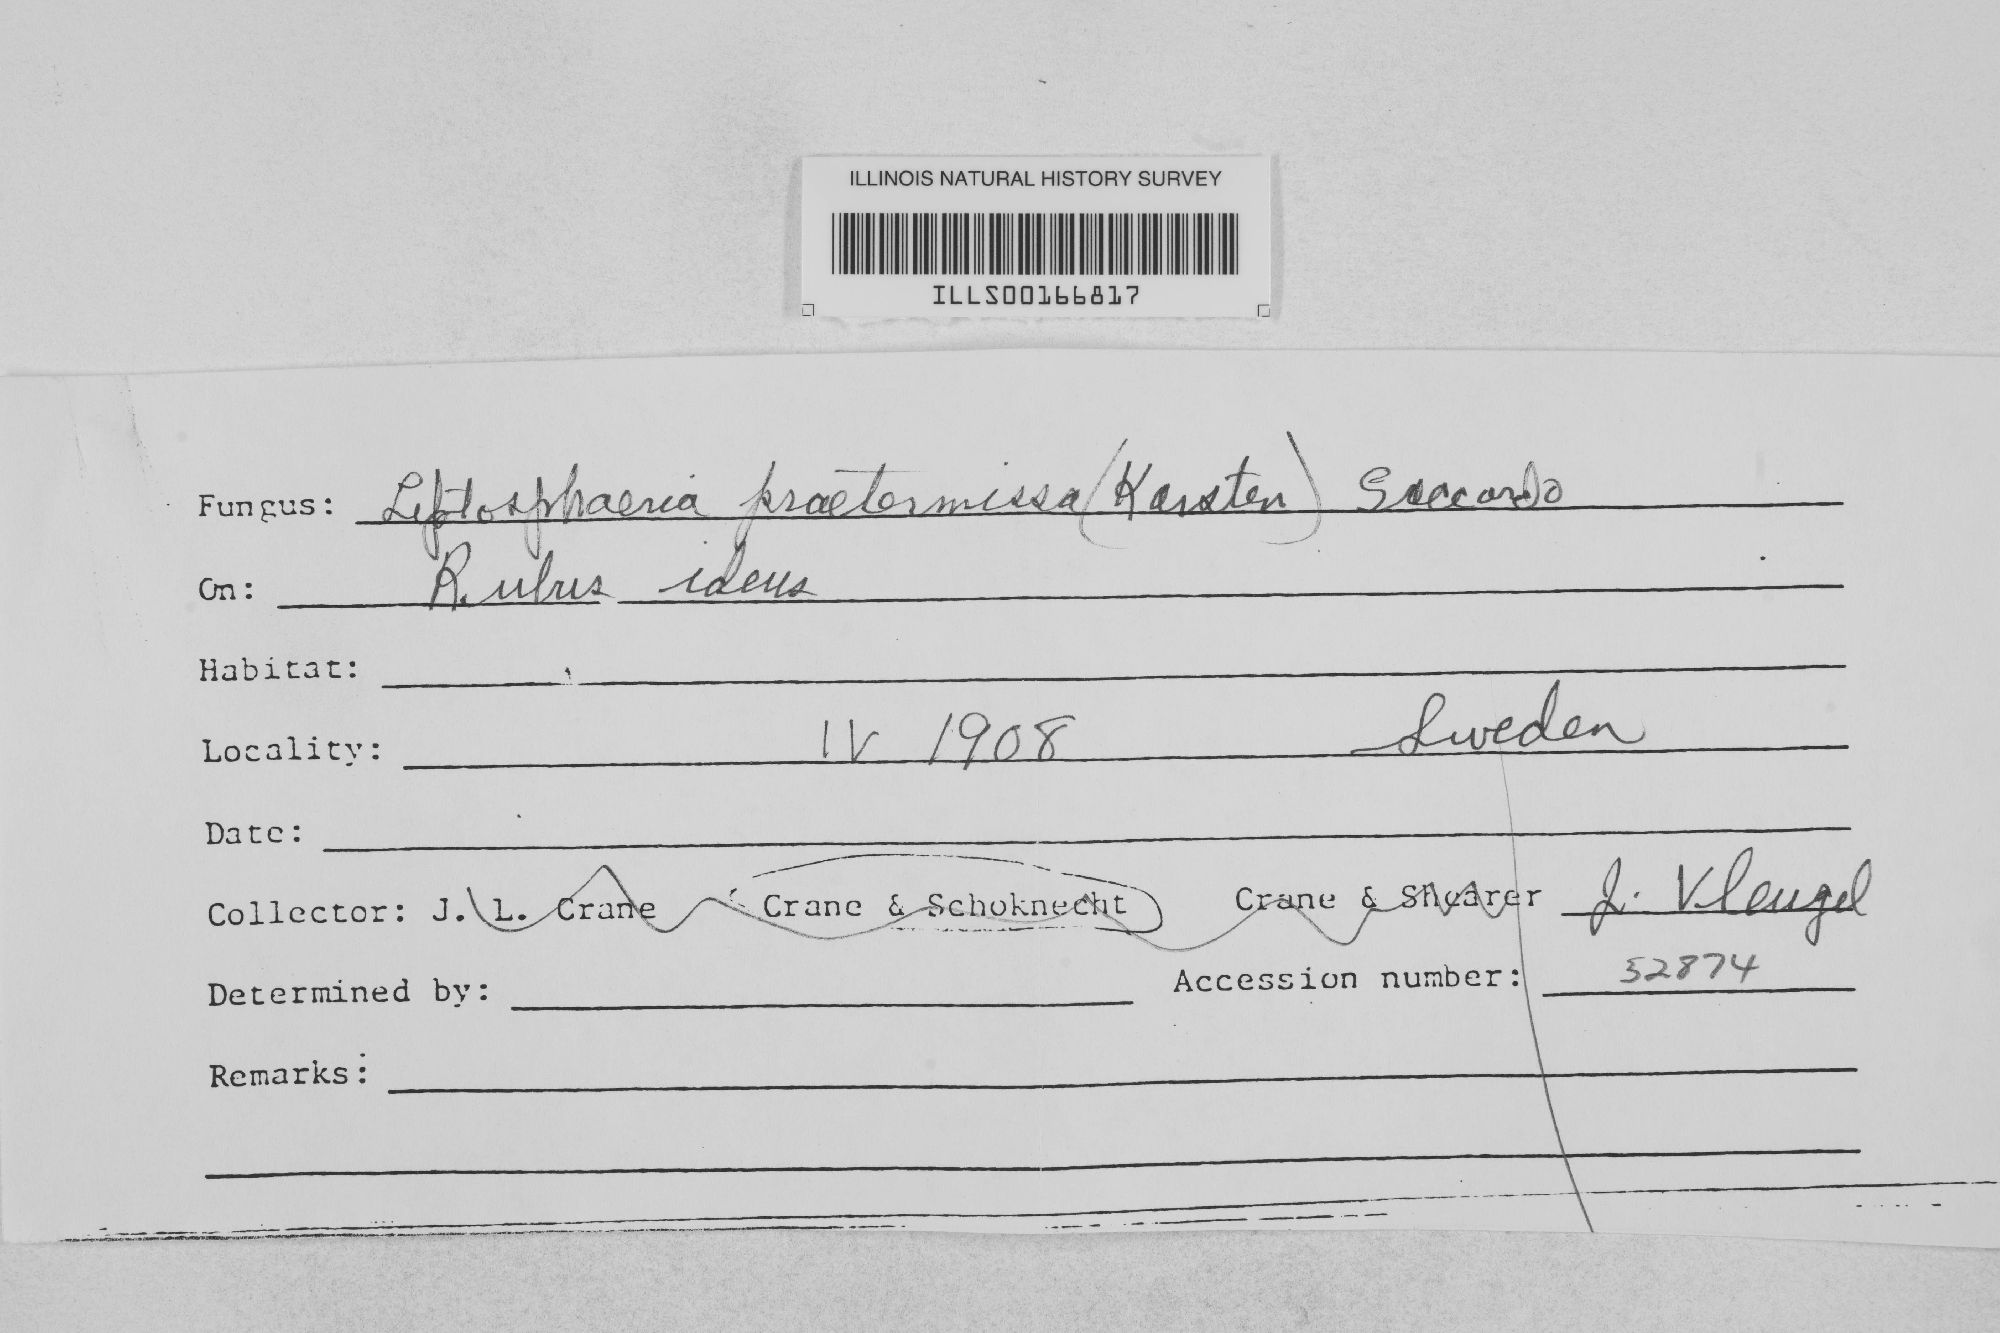 ILLINOIS NATURAL HISTORY SURVEY
ILLS00166817
Fungus: Leptosphaeria praetermissa (Karsten) Saccardo
On: Rubus ideus
Habitat:
Locality: IV 1908 Sweden
Date:
Collector: J. L. Crane Crane & Schoknecht Crane & Shearer J. Vleugel
Determined by: Accession number: 52874
Remarks: